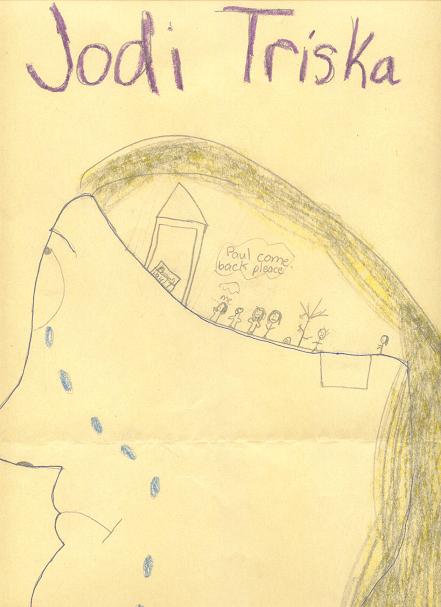 Jodi Triska
Paul come
back pleace
me